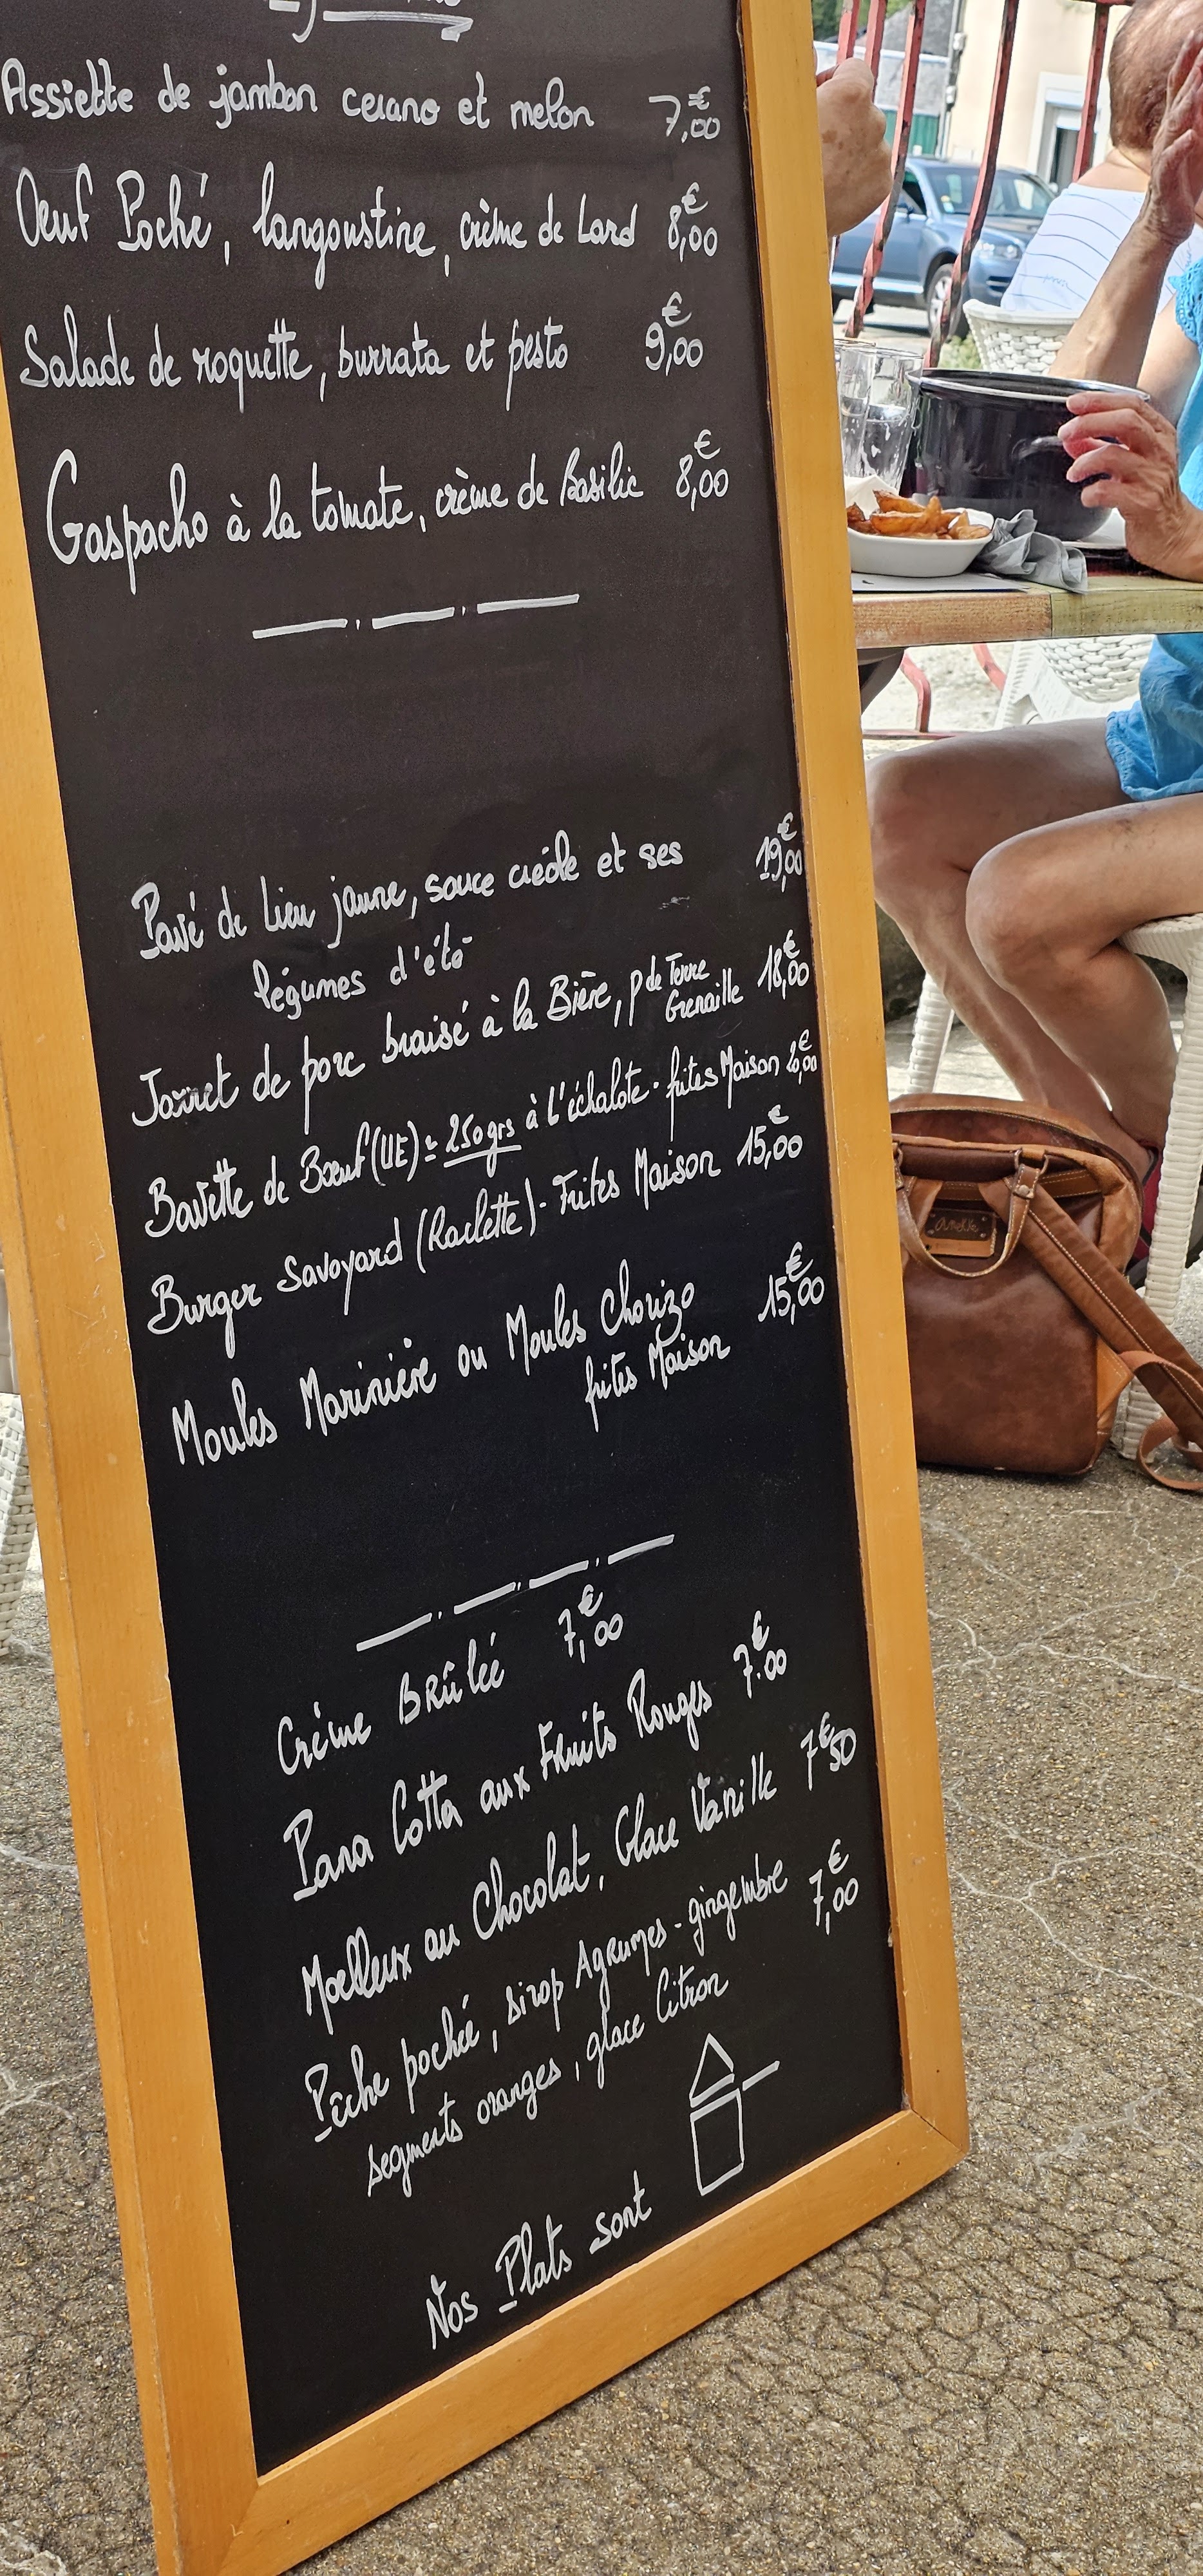 Assiette de jambon cerano et melon 7,00€
Oeuf Poché, langoustine, crème de Lard 8,00€
Salade de roquette, burrata et pesto 9,00€
Gaspacho à la tomate, crème de Basilic 8,00€
Pavé de Lieu jaune, sauce créole et ses 19,00€
légumes d'été
Jarret de porc braisé à la Bière, p de Terre 18,00€
Grenaille
Bavette de Boeuf (UE) ≃ 250grs à l'échalote - frites Maison 20,00€
Burger Savoyard (Raclette) - Frites Maison 15,00€
Moules Marinière ou Moules Chorizo 15,00€
frites Maison
Crème BRûlée 7,00€
Pana Cotta aux FRuits Rouges 7.00€
Moelleux au Chocolat, Glace Vanille 7€50
Pêche pochée, sirop Agrumes - gingembre 7,00€
segments oranges, glace Citron
Nos Plats sont